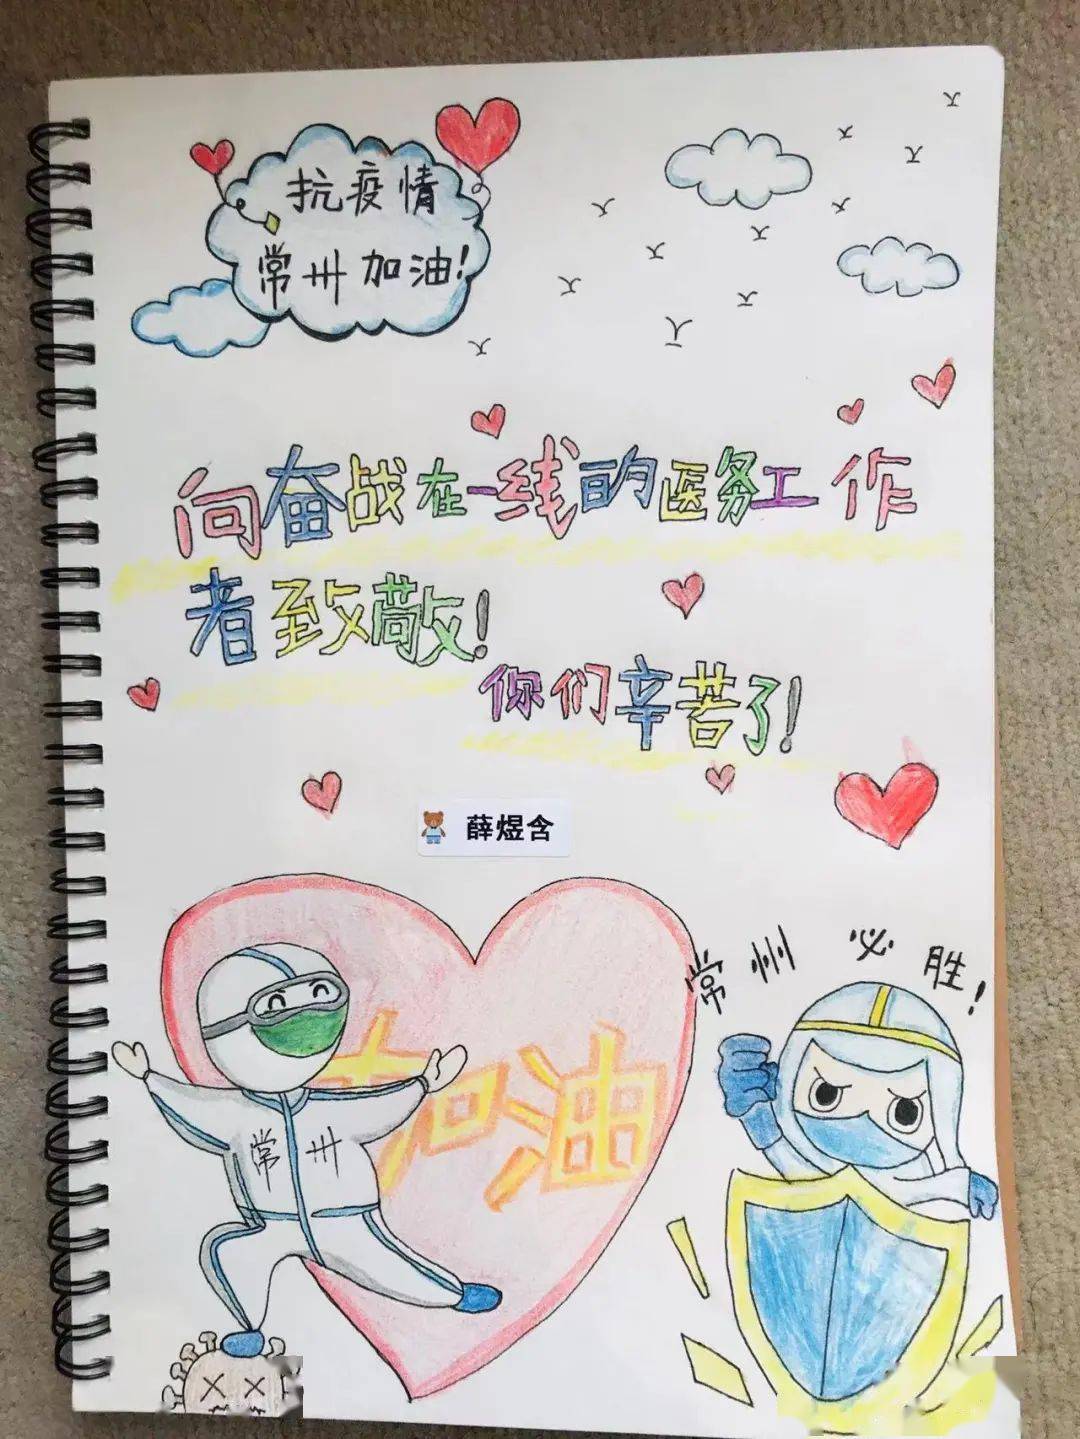 抗疫情
常州加油!
向奋战在一线的医务工作
者致敬!
你们辛苦了!
薛煜含
常州必胜!
加油
常州